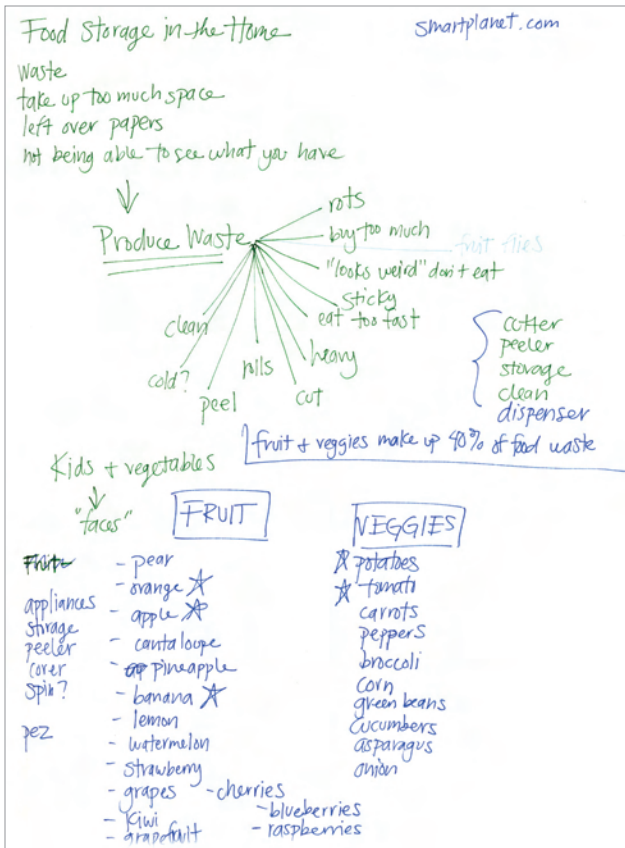 Food Storage in the Home
smartplanet.com
Waste
take up too much space
left over papers
not being able to see what you have
Produce Waste
rots
buy too much
fruit flies
"looks weird" don't eat
sticky
eat too fast
heavy
cut
peel
cold?
clean
cutter
peeler
storage
clean
dispenser
fruit + veggies make up 40% of food waste
Kids + vegetables
"faces"
FRUIT
VEGGIES
Fruit
appliances
storage
peeler
corer
spin?
pez
- pear
- orange
- apple
- cantaloupe
- pineapple
- banana
- lemon
- watermelon
- strawberry
- grapes - cherries
- kiwi - blueberries
- grapefruit - raspberries
potatoes
tomato
carrots
peppers
broccoli
corn
green beans
cucumbers
asparagus
onion